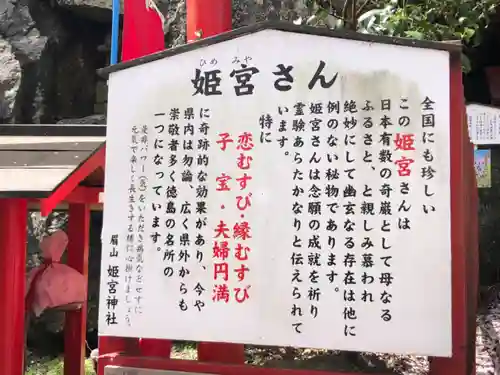 姫宮さん
ひめ みや
全国にも珍しい
この姫宮さんは
日本有数の奇巌として母なる
ふるさと、と親しみ慕われ
絶妙にして幽玄なる存在は他に
例のない秘物であります。
姫宮さんは念願の成就を祈り
霊験あらたかなりと伝えられて
います。
特に
恋むすび・縁むすび
子宝・夫婦円満
に奇跡的な効果があり、今や
県内は勿論、広く県外からも
崇敬者多く徳島の名所の
一つになっています。
是非パワー(気)をいただき病気などせずに
元気で楽しく長生きする様に心掛けましょう。
眉山 姫宮神社